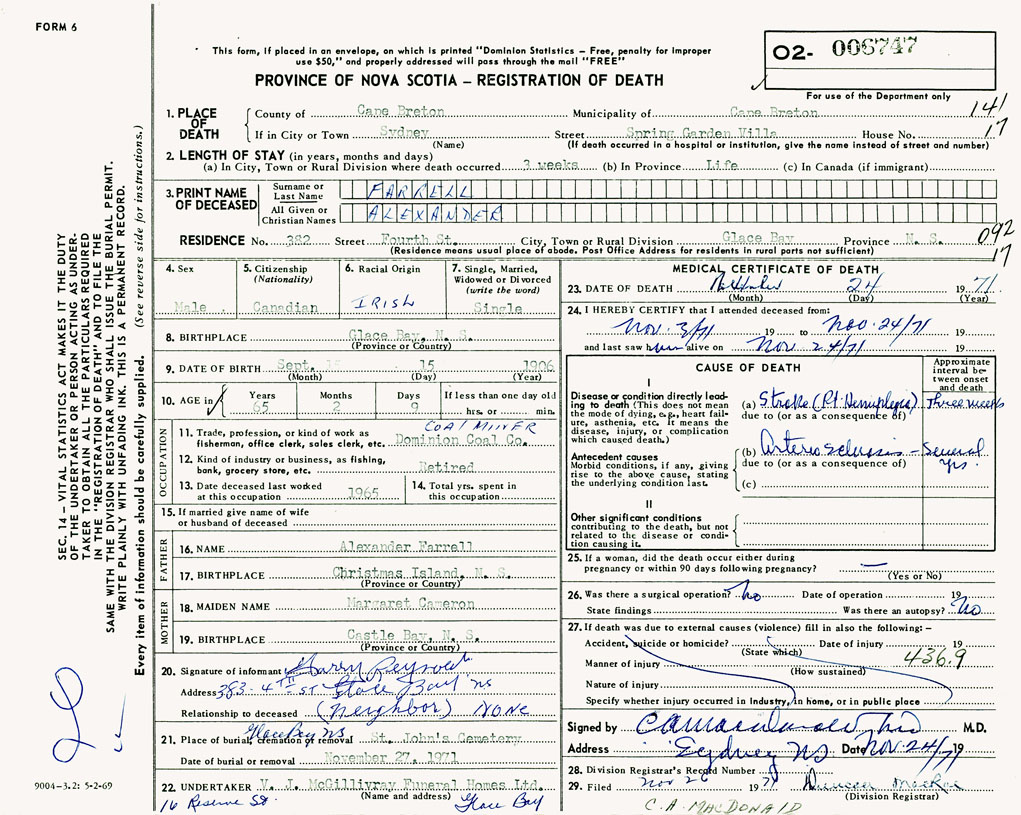 FORM 6
This form, if placed in an envelope, on which is printed "Dominion Statistics – Free, penalty for improper
use $50," and properly addressed will pass through the mail "FREE"
PROVINCE OF NOVA SCOTIA – REGISTRATION OF DEATH
02- 006747
For use of the Department only
1. PLACE OF DEATH
County of Cape Breton Municipality of Cape Breton 141
If in City or Town Sydney Street Spring Garden Villa House No. 17
(Name) (If death occurred in a hospital or institution, give the name instead of street and number)
2. LENGTH OF STAY (in years, months and days)
(a) In City, Town or Rural Division where death occurred 3 weeks (b) In Province Life (c) In Canada (if immigrant)
3. PRINT NAME OF DECEASED
Surname or Last Name FARRELL
All Given or Christian Names ALEXANDER
RESIDENCE No. 382 Street Fourth St. City, Town or Rural Division Glace Bay Province N. S. 092
(Residence means usual place of abode. Post Office Address for residents in rural ports not sufficient) 17
4. Sex
Male
5. Citizenship
(Nationality)
Canadian
6. Racial Origin
IRISH
7. Single, Married,
Widowed or Divorced
(write the word)
Single
8. BIRTHPLACE Glace Bay, N. S.
(Province or Country)
9. DATE OF BIRTH Sept. 15 15 1906
(Month) (Day) (Year)
10. AGE in
Years 65
Months 2
Days 9
If less than one day old
hrs. or min.
OCCUPATION
11. Trade, profession, or kind of work as COAL MINER
fisherman, office clerk, sales clerk, etc. Dominion Coal Co.
12. Kind of industry or business, as fishing,
bank, grocery store, etc. Retired
13. Date deceased last worked
at this occupation 1965
14. Total yrs. spent in
this occupation
15. If married give name of wife
or husband of deceased
FATHER
16. NAME Alexander Farrell
17. BIRTHPLACE Christmas Island, N. S.
(Province or Country)
MOTHER
18. MAIDEN NAME Margaret Cameron
19. BIRTHPLACE Castle Bay, N. S.
(Province or Country)
20. Signature of informant Harry Reynolds
Address 383 - 4TH ST Glace Bay NS
Relationship to deceased (Neighbor) NONE
21. Place of burial, cremation or removal Glace Bay NS St. John's Cemetery
Date of burial or removal November 27, 1971
22. UNDERTAKER V. J. McGillivray Funeral Homes Ltd.
(Name and address)
16 Reserve St. Glace Bay
MEDICAL CERTIFICATE OF DEATH
23. DATE OF DEATH 24 1971
(Month) (Day) (Year)
24. I HEREBY CERTIFY that I attended deceased from:
Nov. 3/71 19 to Nov. 24/71 19
and last saw him alive on Nov 24/71 19
CAUSE OF DEATH
Approximate
interval be-
tween onset
and death
I
Disease or condition directly lead-
ing to death (This does not mean
the mode of dying, e.g., heart fail-
ure, asthenia, etc. It means the
disease, injury, or complication
which caused death.)
(a) Stroke (Rt Hemiplegia) Three weeks
due to (or as a consequence of)
Antecedent causes
Morbid conditions, if any, giving
rise to the above cause, stating
the underlying condition last.
(b) Arteriosclerosis - Several yrs.
due to (or as a consequence of)
(c)
II
Other significant conditions
contributing to the death, but not
related to the disease or condi-
tion causing it.
25. If a woman, did the death occur either during
pregnancy or within 90 days following pregnancy? —
(Yes or No)
26. Was there a surgical operation? No Date of operation 19
State findings Was there an autopsy? No
27. If death was due to external causes (violence) fill in also the following: –
Accident, suicide or homicide? Date of injury 19
(State which) 436.9
Manner of injury
(How sustained)
Nature of injury
Specify whether injury occurred in Industry, in home, or in public place
Signed by M.D.
Address Sydney NS Date Nov. 24/71 19
28. Division Registrar's Record Number
29. Filed Nov 1971
(Division Registrar)
C. A. MACDONALD
SEC. 14 – VITAL STATISTICS ACT MAKES IT THE DUTY
OF THE UNDERTAKER OR PERSON ACTING AS UNDER-
TAKER TO OBTAIN ALL THE PARTICULARS REQUIRED
IN THE "REGISTRATION OF DEATH" AND TO FILE THE
SAME WITH THE DIVISION REGISTRAR WHO SHALL ISSUE THE BURIAL PERMIT.
WRITE PLAINLY WITH UNFADING INK. THIS IS A PERMANENT RECORD.
Every item of information should be carefully supplied. (See reverse side for instructions.)
9004-3.2: 5-2-69